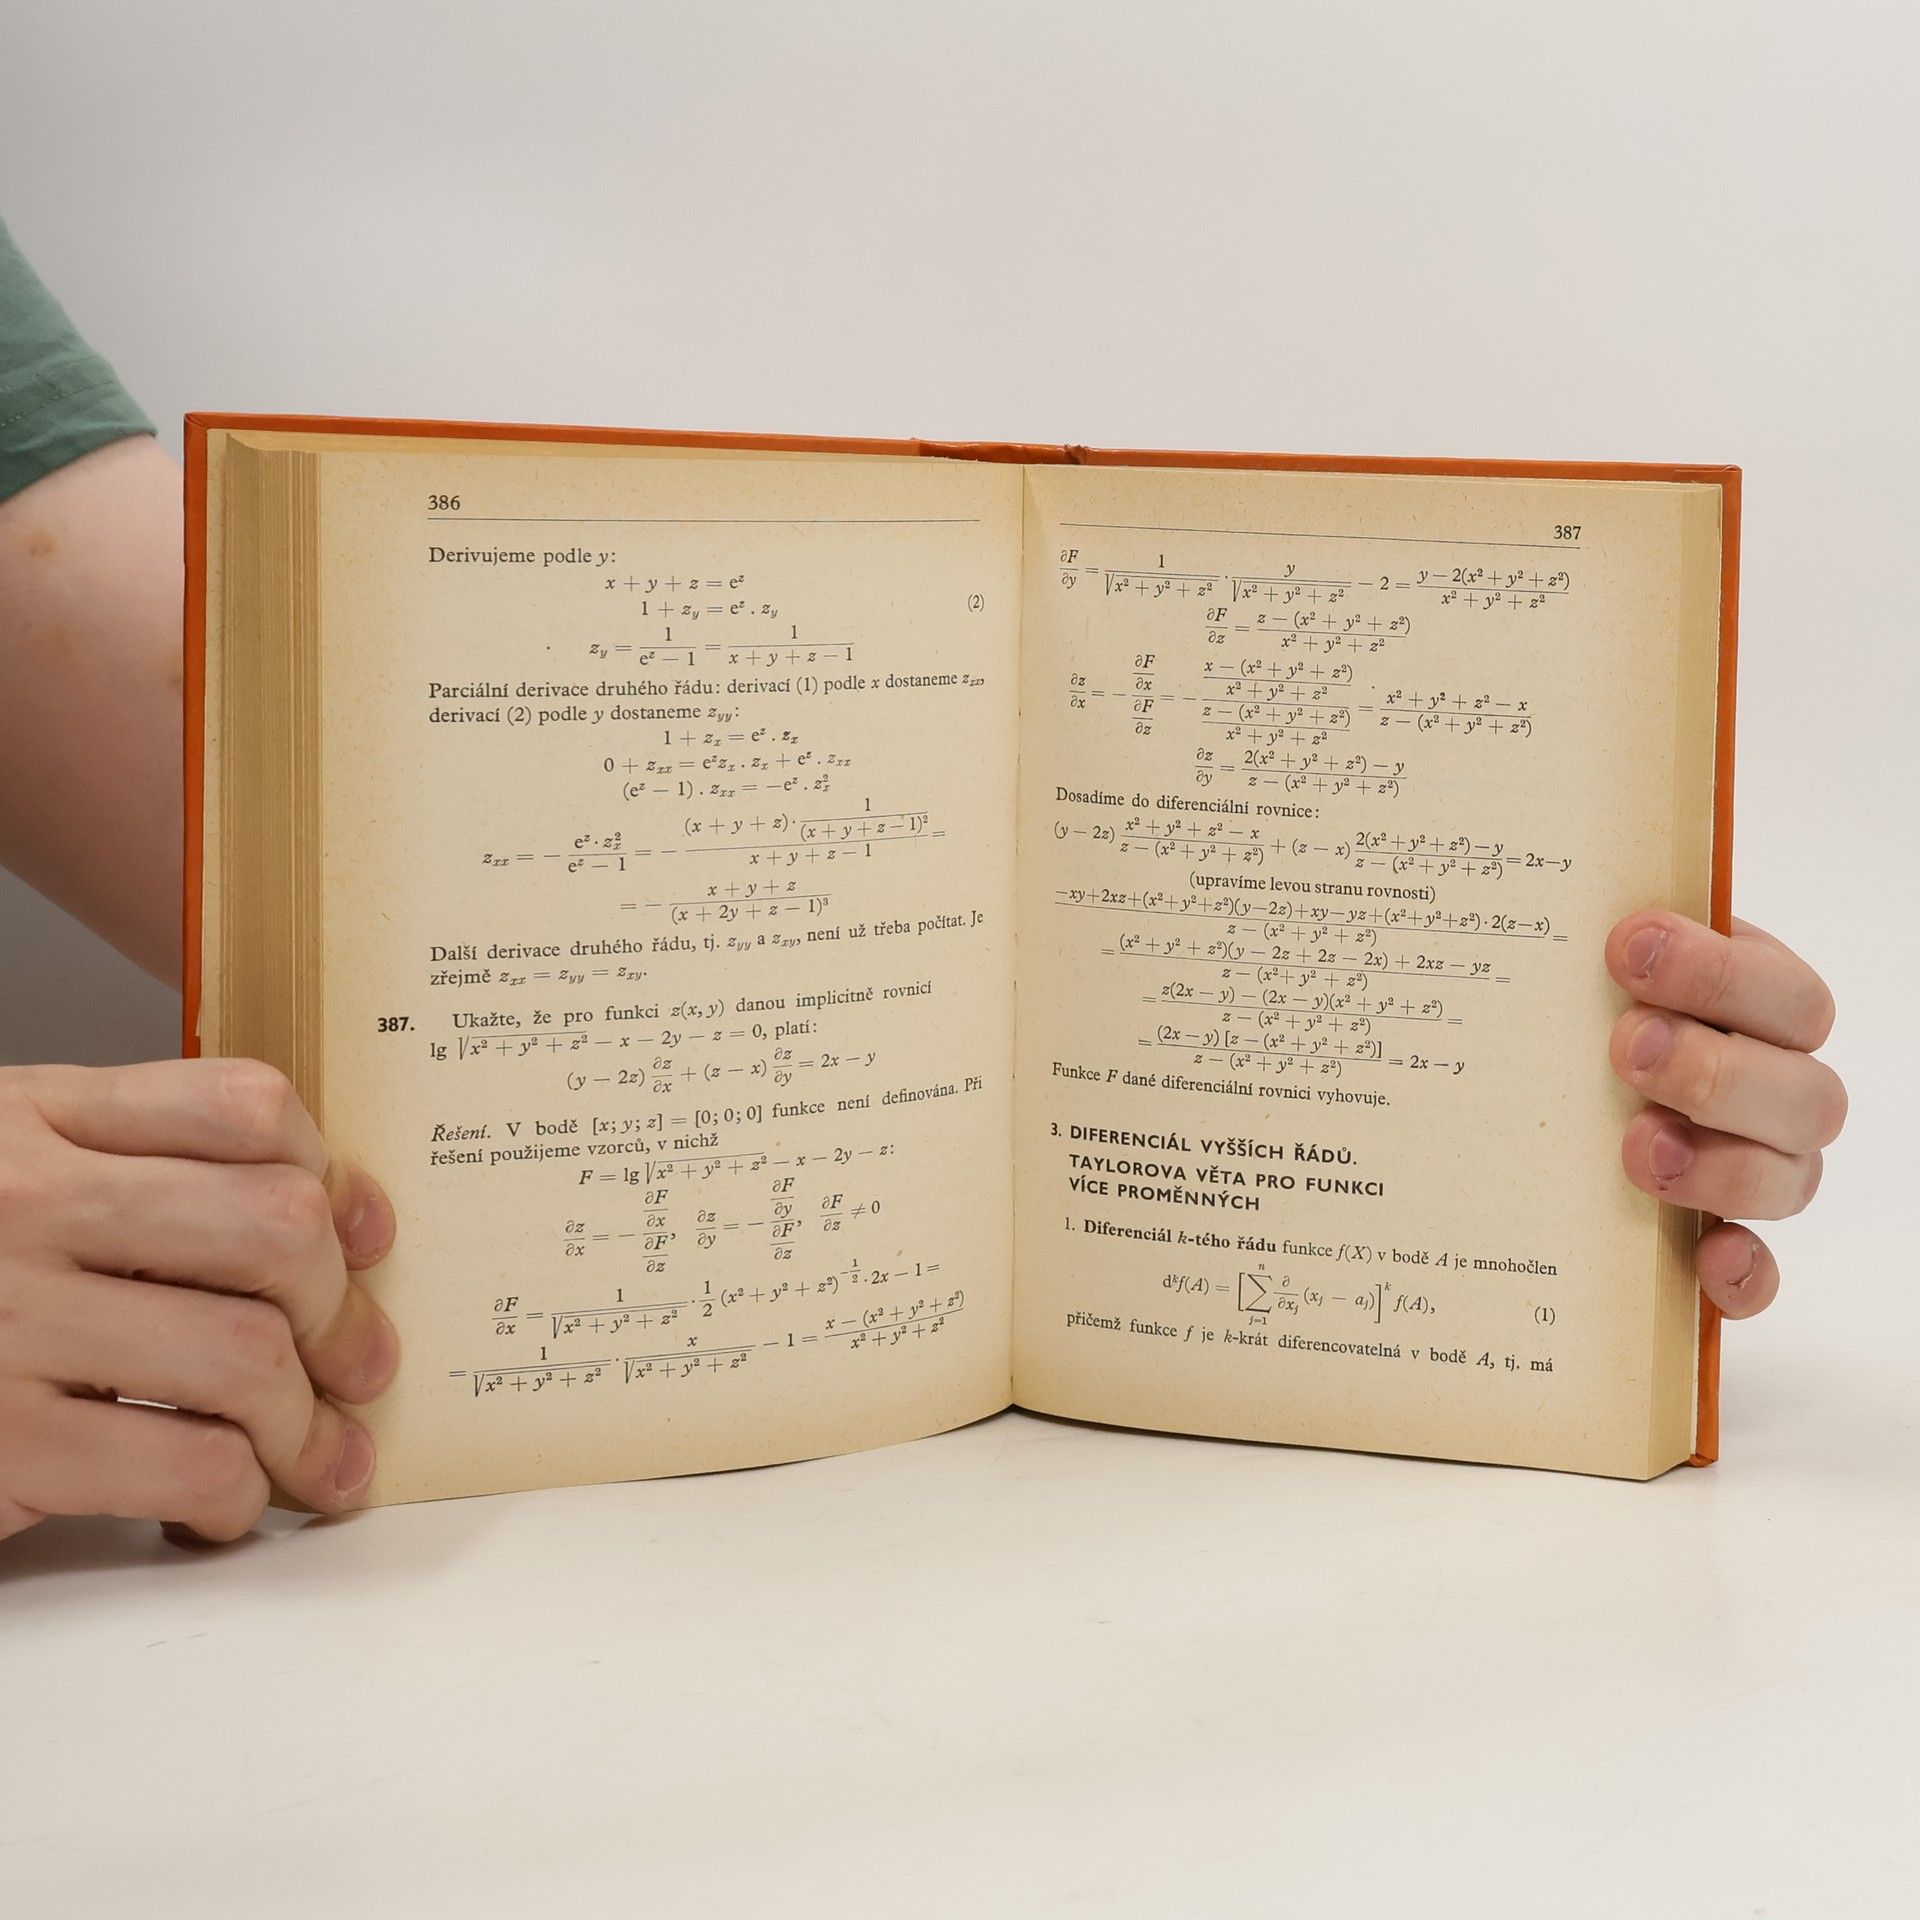 386
Derivujeme podle y:
x + y + z = e^z
1 + z_y = e^z . z_y (2)
z_y = 1/(e^z − 1) = 1/(x + y + z − 1)
Parciální derivace druhého řádu: derivací (1) podle x dostaneme z_xx,
derivací (2) podle y dostaneme z_yy:
1 + z_x = e^z . z_x
0 + z_xx = e^z z_x . z_x + e^z . z_xx
(e^z − 1) . z_xx = −e^z . z_x^2
z_xx = − (e^z · z_x^2)/(e^z − 1) = − ((x + y + z) · 1/(x + y + z − 1)^2)/(x + y + z − 1) =
= − (x + y + z)/(x + 2y + z − 1)^3
Další derivace druhého řádu, tj. z_yy a z_xy, není už třeba počítat. Je
zřejmě z_xx = z_yy = z_xy.
387. Ukažte, že pro funkci z(x, y) danou implicitně rovnicí
lg √(x² + y² + z²) − x − 2y − z = 0, platí:
(y − 2z) ∂z/∂x + (z − x) ∂z/∂y = 2x − y
Řešení. V bodě [x; y; z] = [0; 0; 0] funkce není definována. Při
řešení použijeme vzorců, v nichž
F = lg √(x² + y² + z²) − x − 2y − z:
∂z/∂x = − (∂F/∂x)/(∂F/∂z), ∂z/∂y = − (∂F/∂y)/(∂F/∂z), ∂F/∂z ≠ 0
∂F/∂x = 1/√(x² + y² + z²) · 1/2 (x² + y² + z²)^(−1/2) . 2x − 1 =
= 1/√(x² + y² + z²) · x/√(x² + y² + z²) − 1 = (x − (x² + y² + z²))/(x² + y² + z²)
387
∂F/∂y = 1/√(x² + y² + z²) · y/√(x² + y² + z²) − 2 = (y − 2(x² + y² + z²))/(x² + y² + z²)
∂F/∂z = (z − (x² + y² + z²))/(x² + y² + z²)
∂z/∂x = − (∂F/∂x)/(∂F/∂z) = − ((x − (x² + y² + z²))/(x² + y² + z²))/((z − (x² + y² + z²))/(x² + y² + z²)) = (x² + y² + z² − x)/(z − (x² + y² + z²))
∂z/∂y = (2(x² + y² + z²) − y)/(z − (x² + y² + z²))
Dosadíme do diferenciální rovnice:
(y − 2z) (x² + y² + z² − x)/(z − (x² + y² + z²)) + (z − x) (2(x² + y² + z²) − y)/(z − (x² + y² + z²)) = 2x − y
(upravíme levou stranu rovnosti)
(−xy + 2xz + (x² + y² + z²)(y − 2z) + xy − yz + (x² + y² + z²) · 2(z − x))/(z − (x² + y² + z²)) =
= ((x² + y² + z²)(y − 2z + 2z − 2x) + 2xz − yz)/(z − (x² + y² + z²)) =
= (z(2x − y) − (2x − y)(x² + y² + z²))/(z − (x² + y² + z²)) =
= ((2x − y) [z − (x² + y² + z²)])/(z − (x² + y² + z²)) = 2x − y
Funkce F dané diferenciální rovnici vyhovuje.
3. DIFERENCIÁL VYŠŠÍCH ŘÁDŮ.
TAYLOROVA VĚTA PRO FUNKCI
VÍCE PROMĚNNÝCH
1. Diferenciál k-tého řádu funkce f(X) v bodě A je mnohočlen
d^k f(A) = [∑_{j=1}^{n} ∂/∂x_j (x_j − a_j)]^k f(A), (1)
přičemž funkce f je k-krát diferencovatelná v bodě A, tj. má